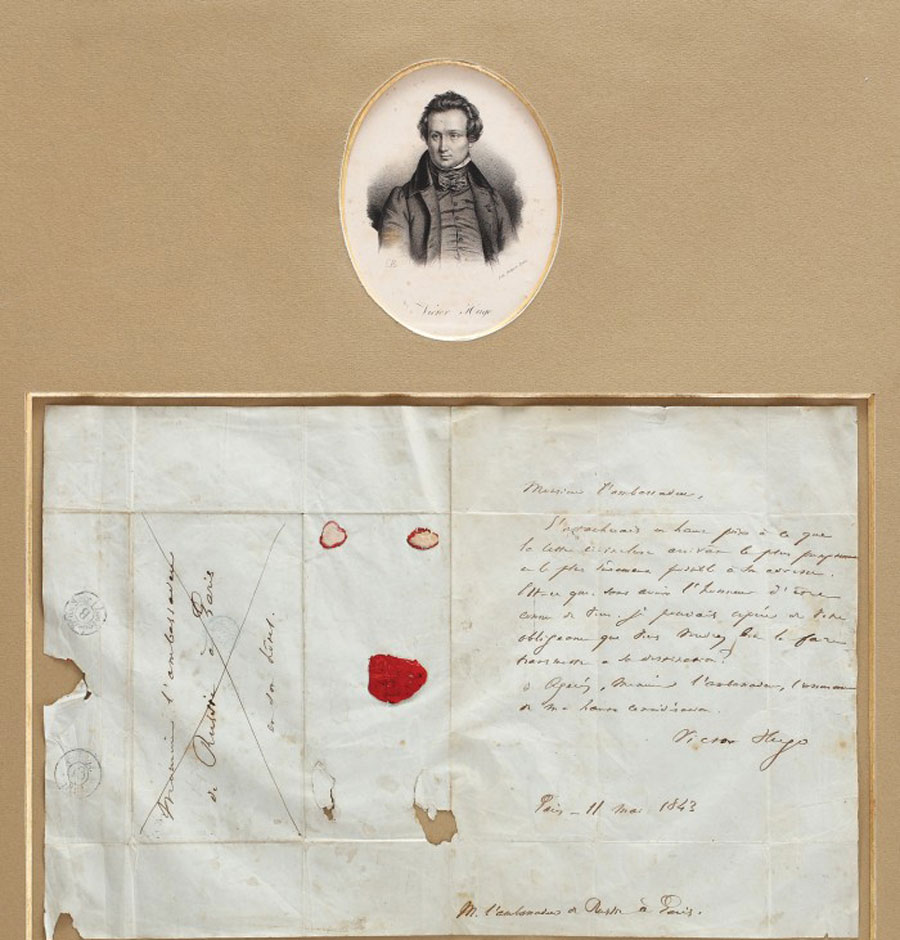 Victor Hugo
Monsieur l'ambassadeur
de Russie à Paris
en son hôtel.
Monsieur l'ambassadeur,
J'attacherais un haut prix à ce que
la lettre ci-incluse arrivât le plus
et le plus sûrement possible à son adresse.
Est-ce que, sans avoir l'honneur d'être
connu de vous, je pouvais espérer de votre
obligeance que vous voudrez bien la faire
transmettre à sa destination?
Agréez, Monsieur l'ambassadeur, l'assurance
de ma haute considération.
Victor Hugo
Paris - 11 mai 1843
M. l'ambassadeur de Russie à Paris.